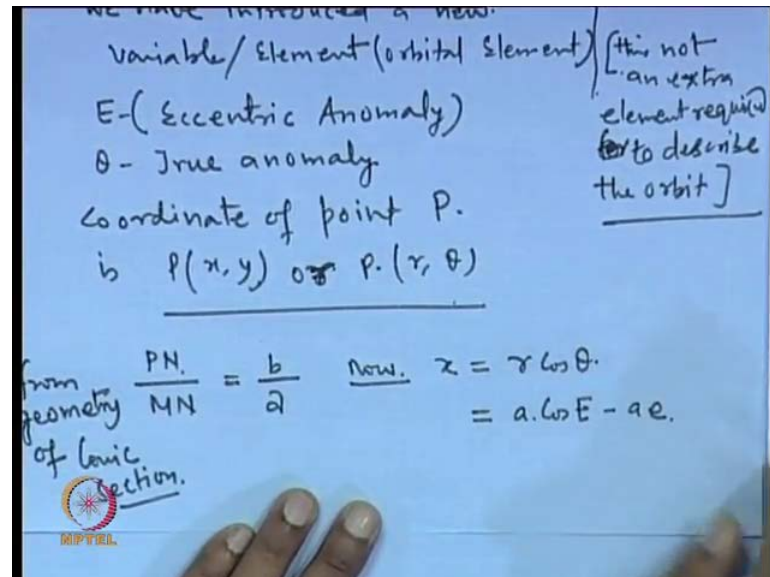 we have introduced a new.
variable/Element (orbital Element) [this not
an extra
element required
for to describe
the orbit]
E-(Eccentric Anomaly)
θ - True anomaly.
coordinate of point P.
is P(x, y) or P.(r, θ)
from geometry of Conic section.
PN./MN = b/a Now. x = r Cos θ.
= a. Cos E - ae.
NPTEL